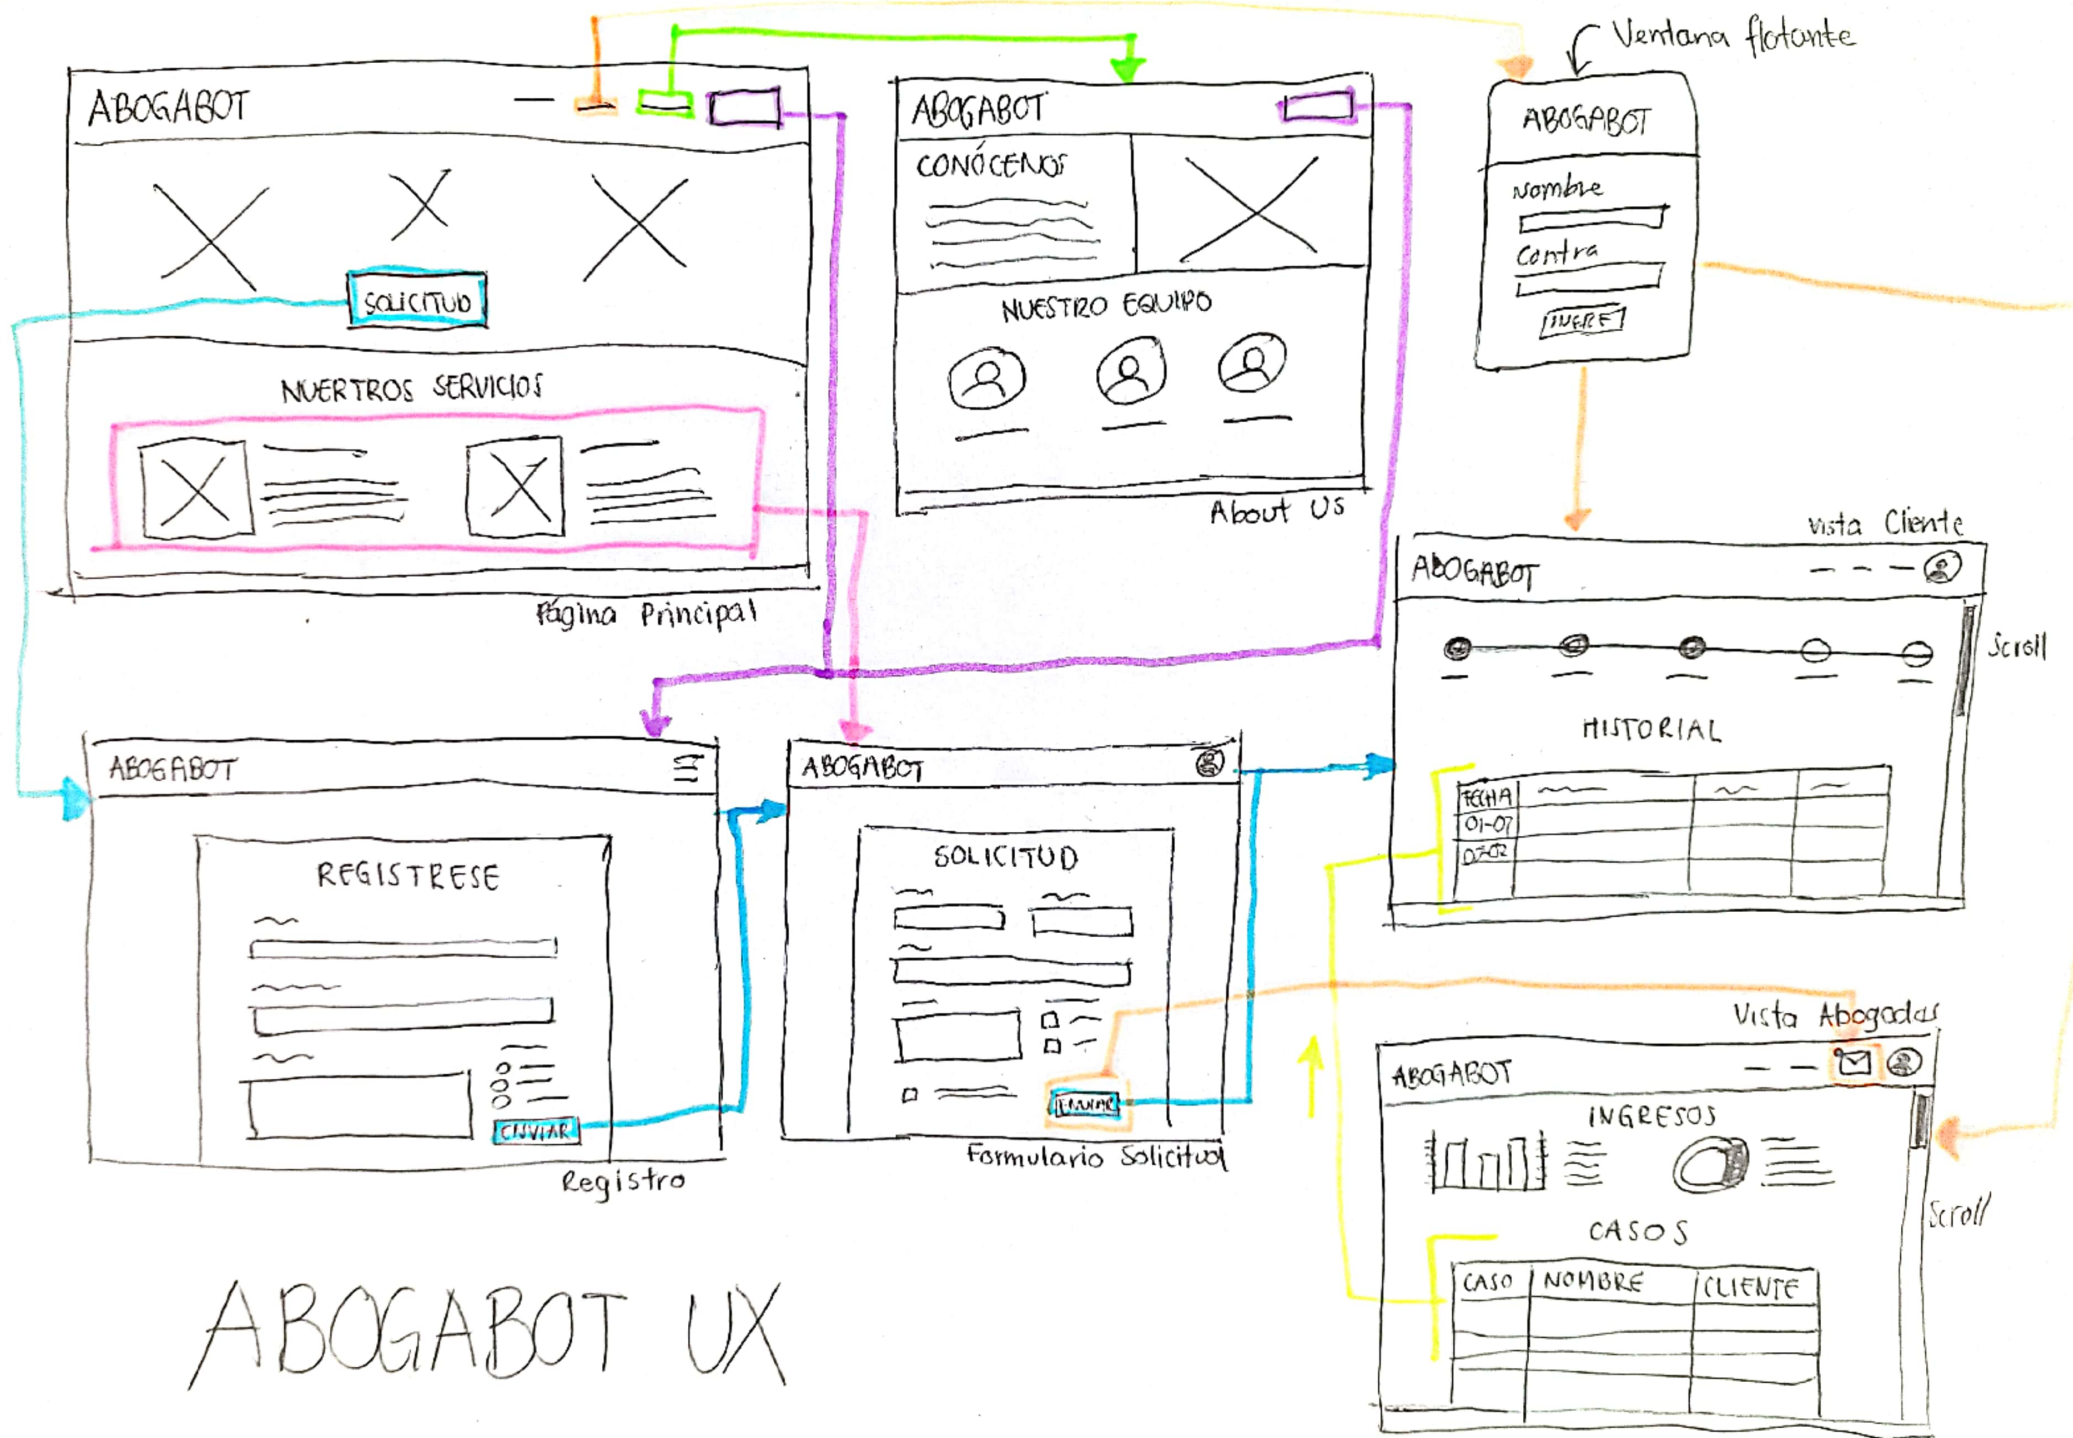 Ventana flotante
ABOGABOT
SOLICITUD
NUERTROS SERVICIOS
Página Principal
ABOGABOT
CONÓCENOS
NUESTRO EQUIPO
About Us
ABOGABOT
Nombre
Contra
INGRE
Vista Cliente
ABOGABOT
Scroll
HISTORIAL
FECHA
01-07
ABOGABOT
REGISTRESE
ENVIAR
Registro
ABOGABOT
SOLICITUD
ENVIAR
Formulario Solicitud
Vista Abogadas
ABOGABOT
INGRESOS
Scroll
CASOS
CASO NOMBRE CLIENTE
ABOGABOT UX